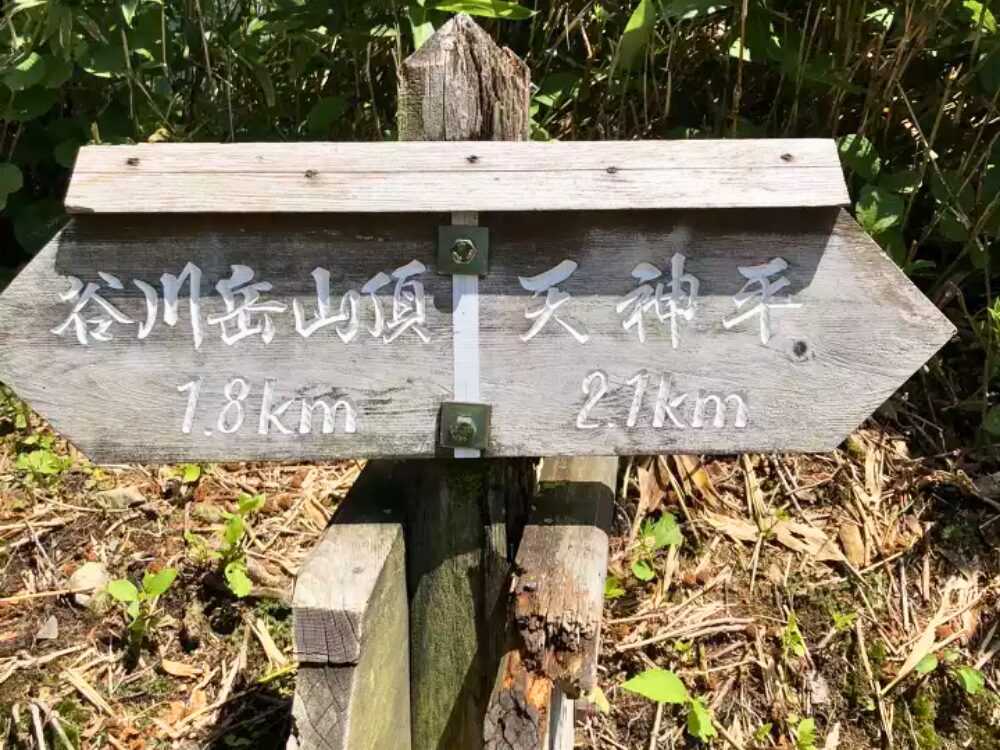 谷川岳山頂
1.8km
天神平
2.1km